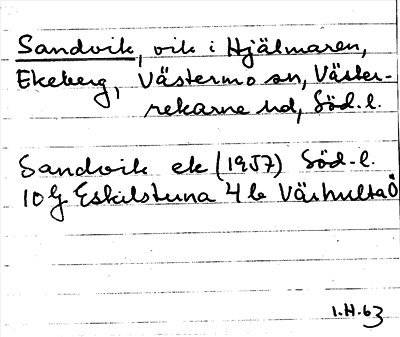 Sandvik, vik i Hjälmaren,
Ekeberg, Västermo sn, Väster-
rekarne hd, Söd. l.
Sandvik ek (1957) Söd. l.
10G Eskilstuna 4 b Väshulta Ö
1.H.63